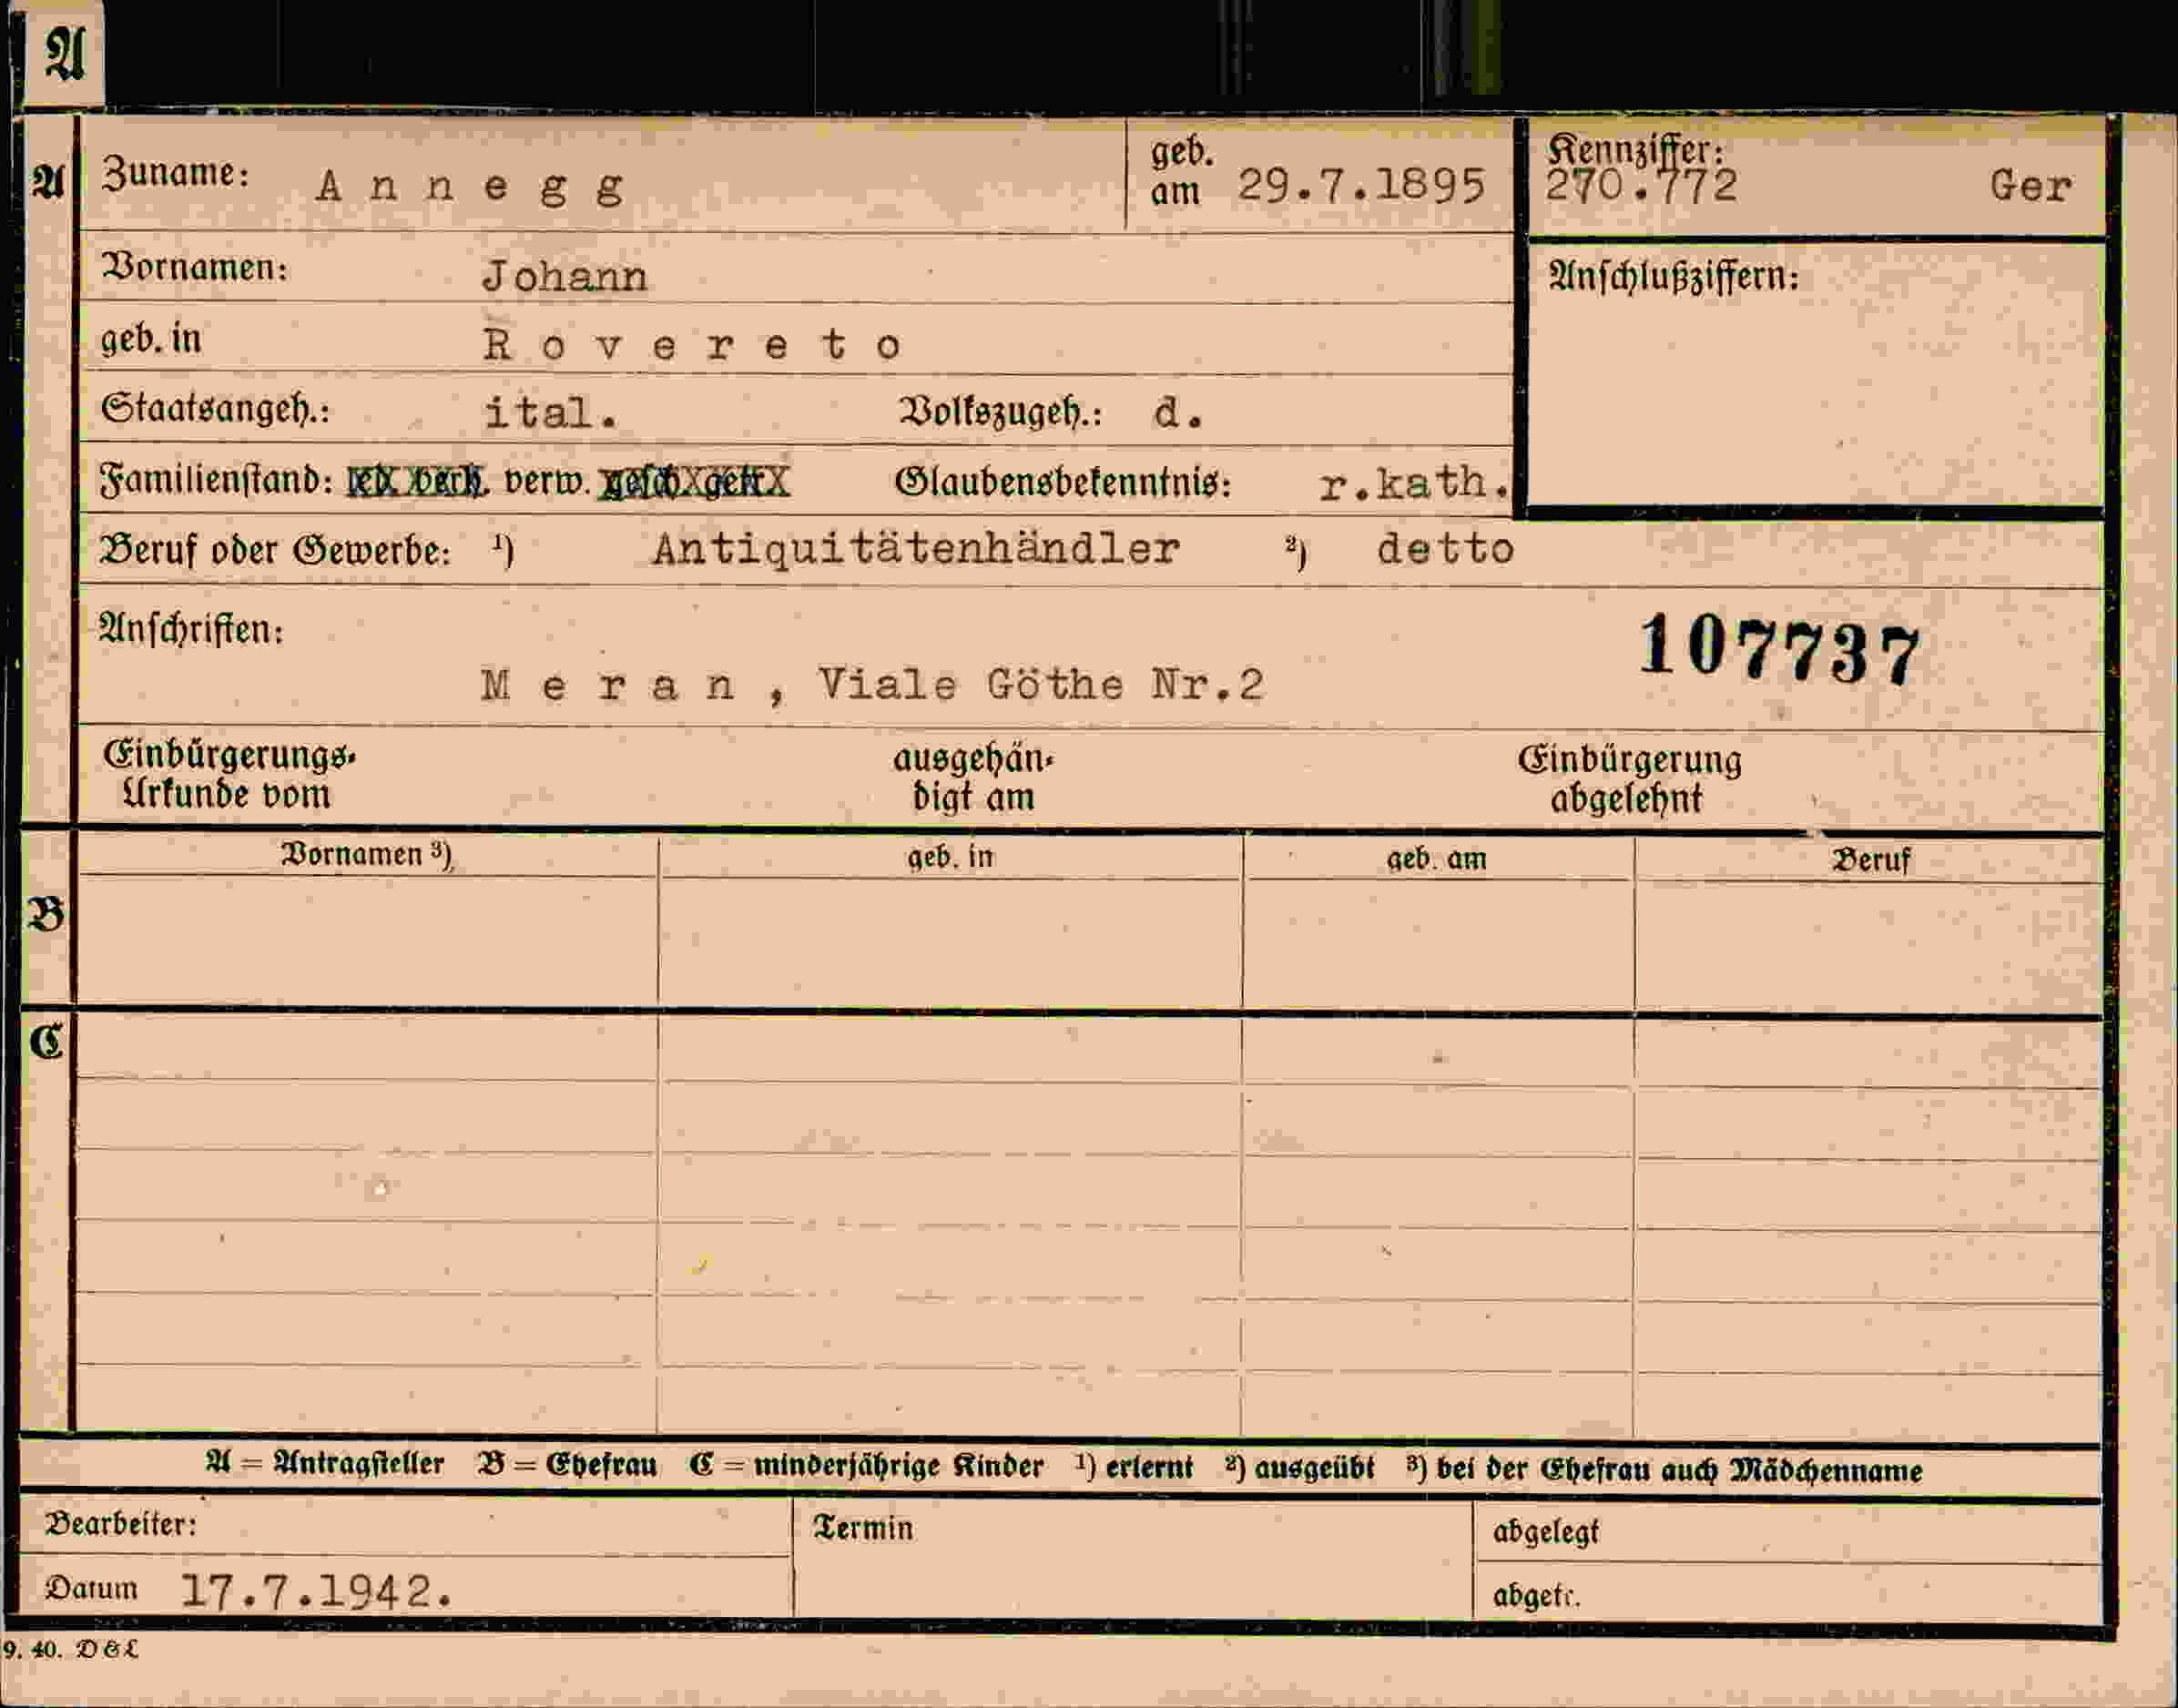 A
A Zuname: A n n e g g geb. am 29.7.1895 Kennziffer: 270.772 Ger
Vornamen: Johann Anschlußziffern:
geb. in R o v e r e t o
Staatsangeh.: ital. Volkszugeh.: d.
Familienstand: led. verh. verw. gesch. getr. Glaubensbekenntnis: r.kath.
Beruf oder Gewerbe: ¹) Antiquitätenhändler ²) detto
Anschriften: 107737
M e r a n , Viale Göthe Nr.2
Einbürgerungs- ausgehän- Einbürgerung
Urkunde vom digt am abgelehnt
Vornamen ³) geb. in geb. am Beruf
B
C
A = Antragsteller B = Ehefrau C = minderjährige Kinder ¹) erlernt ²) ausgeübt ³) bei der Ehefrau auch Mädchenname
Bearbeiter: Termin abgelegt
Datum 17.7.1942. abgetr.
9. 40. D & L